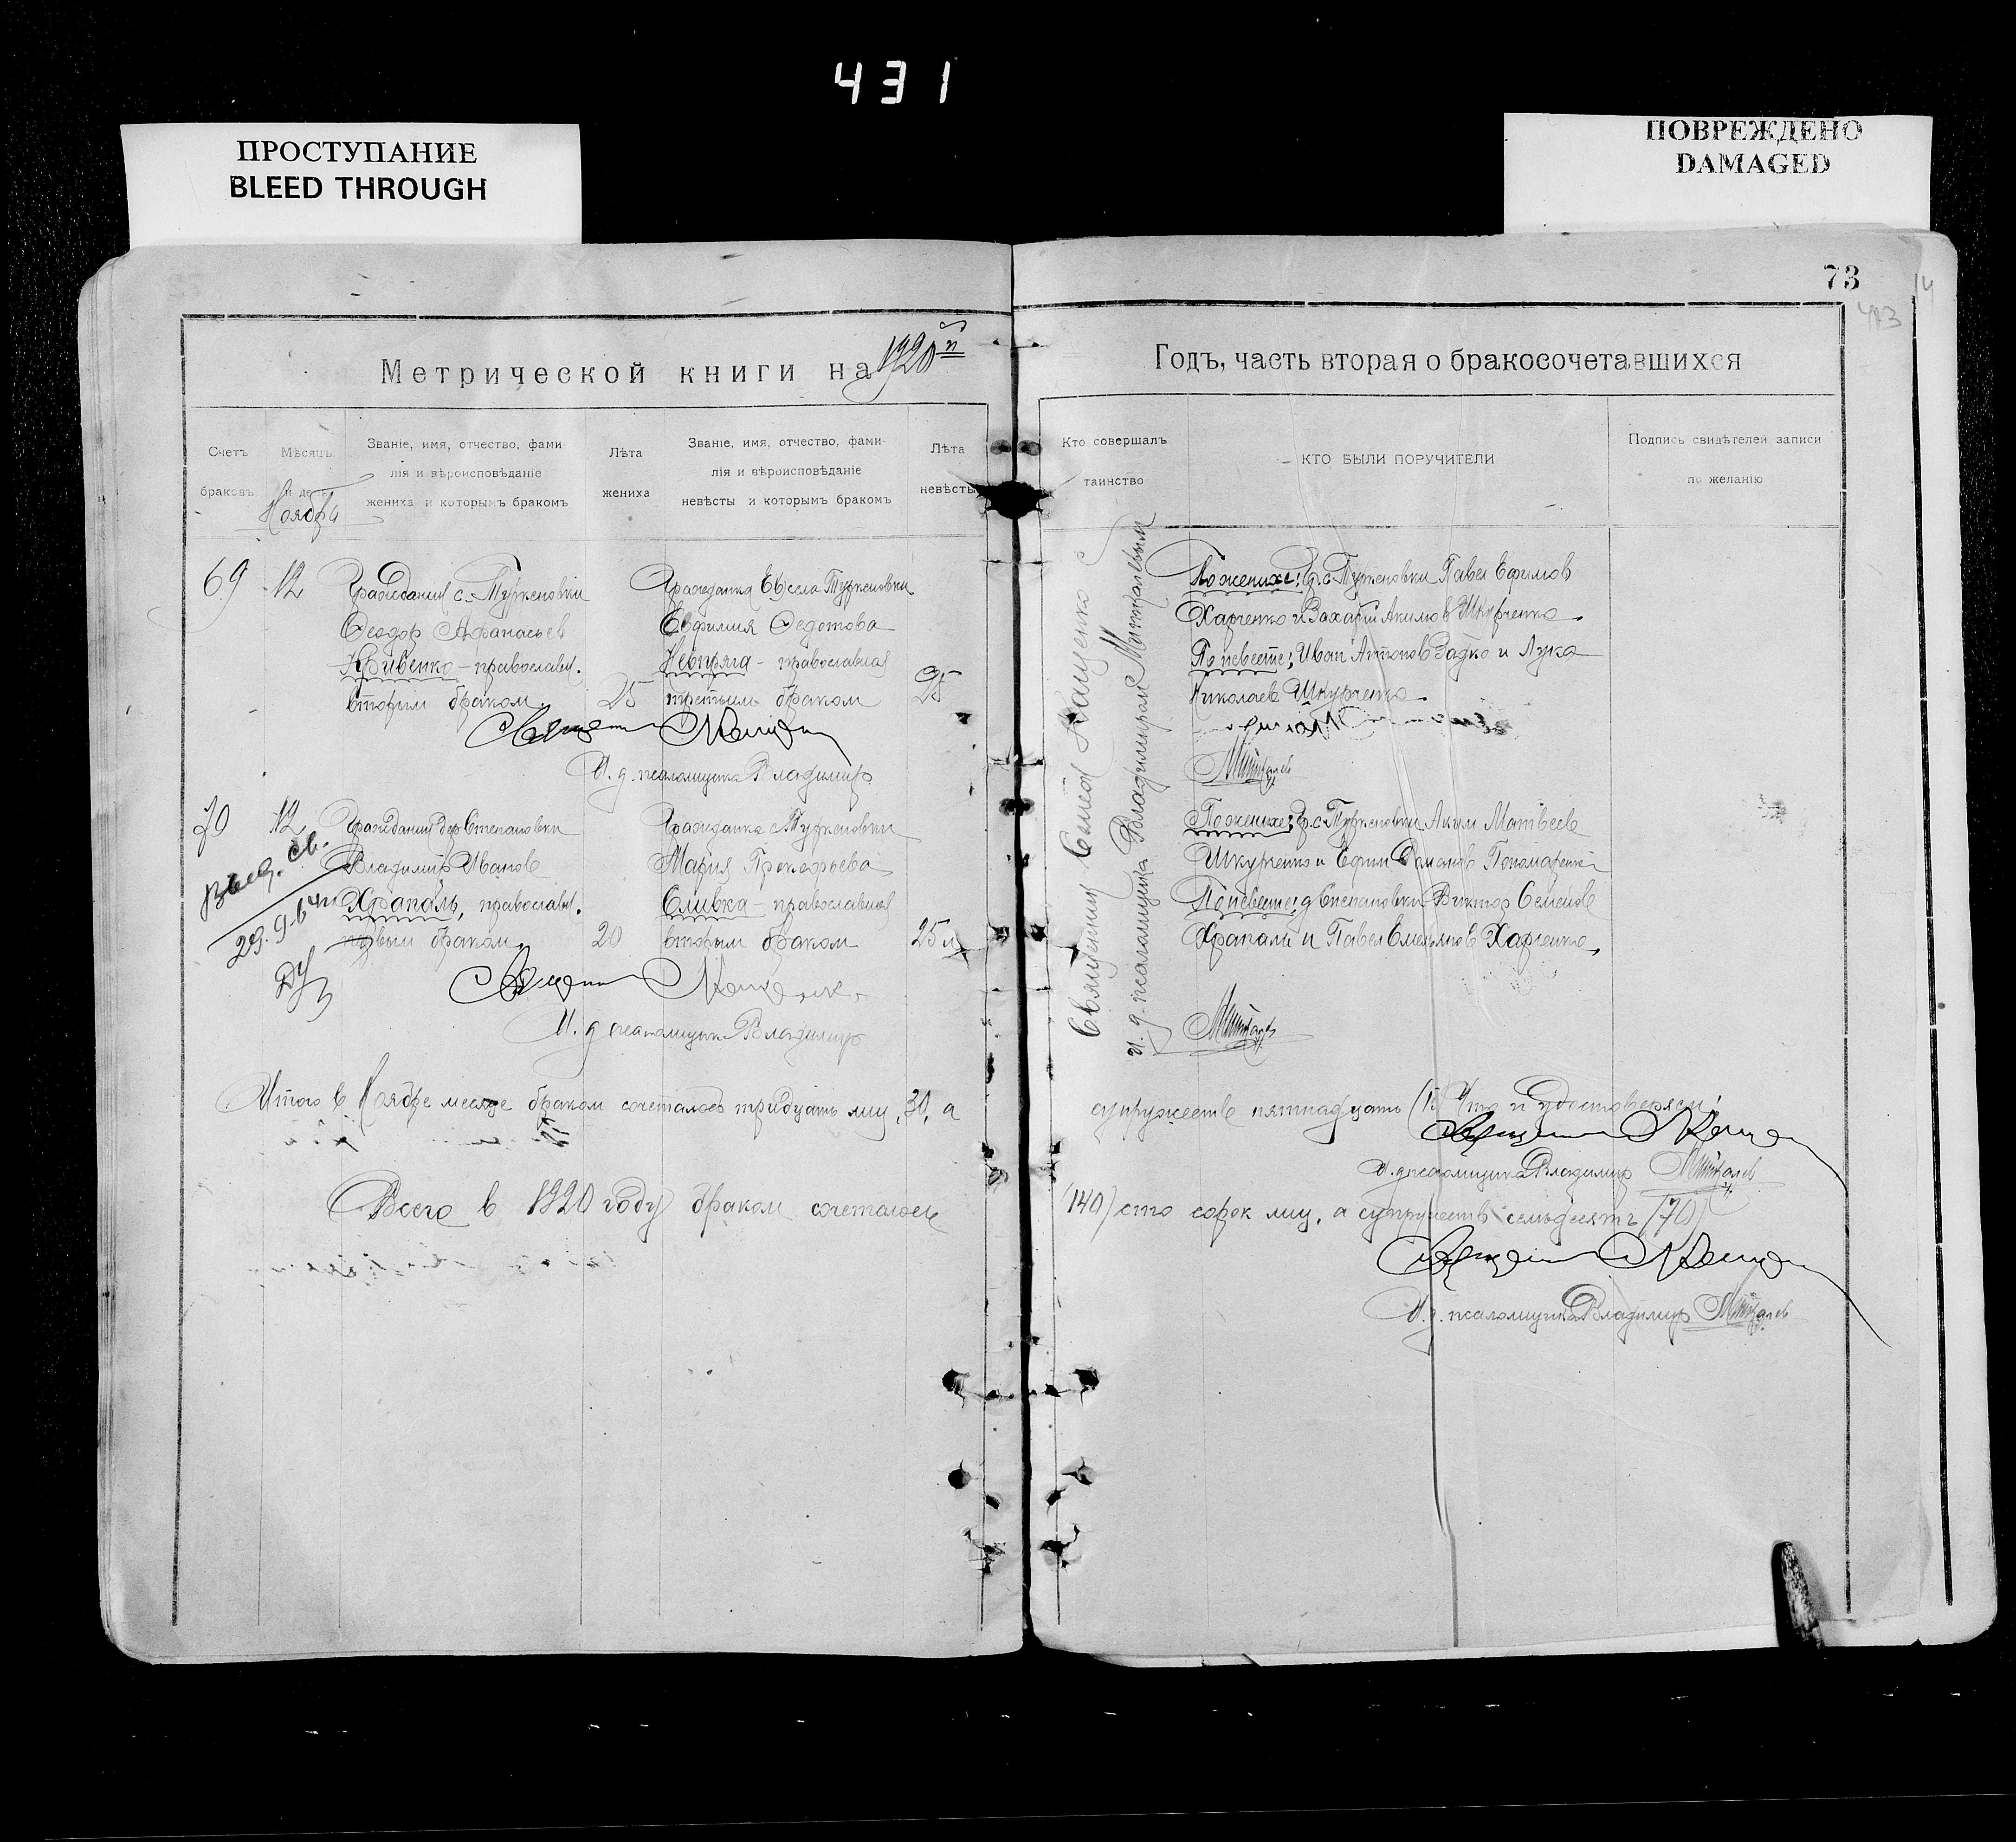 431
ПРОСТУПАНИЕ
BLEED THROUGH
ПОВРЕЖДЕНО
DAMAGED
73
Метрической книги на 1920й
Годъ, часть вторая о бракосочетавшихся
Счетъ браковъ
Мѣсяцъ и день
Званіе, имя, отчество, фами-
лія и вѣроисповѣданіе
жениха и которымъ бракомъ
Лѣта
жениха
Званіе, имя, отчество, фами-
лія и вѣроисповѣданіе
невѣсты и которымъ бракомъ
Лѣта
невѣсты
Кто совершалъ
таинство
КТО БЫЛИ ПОРУЧИТЕЛИ
Подпись свидѣтелей записи
по желанію
Ноябрь
69
12
Гражданин с. Туркеновки
Феодор Афанасьев
Кривенко - православн.
вторым браком.
25
Гражданка села Туркеновки
Евфимия Федотова
Невпряга - православная
третьим браком
25
И. д. псаломщика Владимир
По женихе: гр. с. Туркеновки Павел Ефимов
Харченко и Захарий Акимов Шкурченко
По невесте: Иван Антонов Гадко и Лука
Николаев Шкурченко
70
12
Гражданин дер. Степановки
Владимир Иванов
Храпаль, православн.
первым браком
20
Гражданка с. Туркеновки
Мария Прокофьева
Сливка - православная
вторым браком
25 л
Выд. св.
29.9.64
И. д. псаломщика Владимир
По женихе: гр. с. Туркеновки Аким Матвеев
Шкурченко и Ефим Романов Пономаренко
По невесте: д. Степановки Виктор Семенов
Храпаль и Павел Емельянов Харченко
Священник Кащенко с
и. д. псаломщика Владимиром
Итого в Ноябре месяце браком сочеталось тридцать лиц, 30, а
супружеств пятнадцать (15) Что и удостоверяем:
И. д. псаломщика Владимир
Всего в 1920 году браком сочеталось
(140) сто сорок лиц, а супружеств семьдесятъ (70)
И. д. псаломщика Владимир